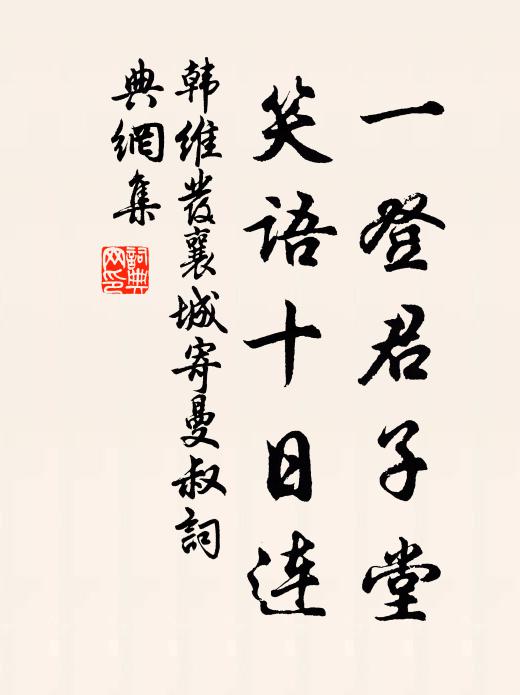 一登君子堂
笑语十日连
韩维发襄城寄曼叔词
典網集
詞典網印